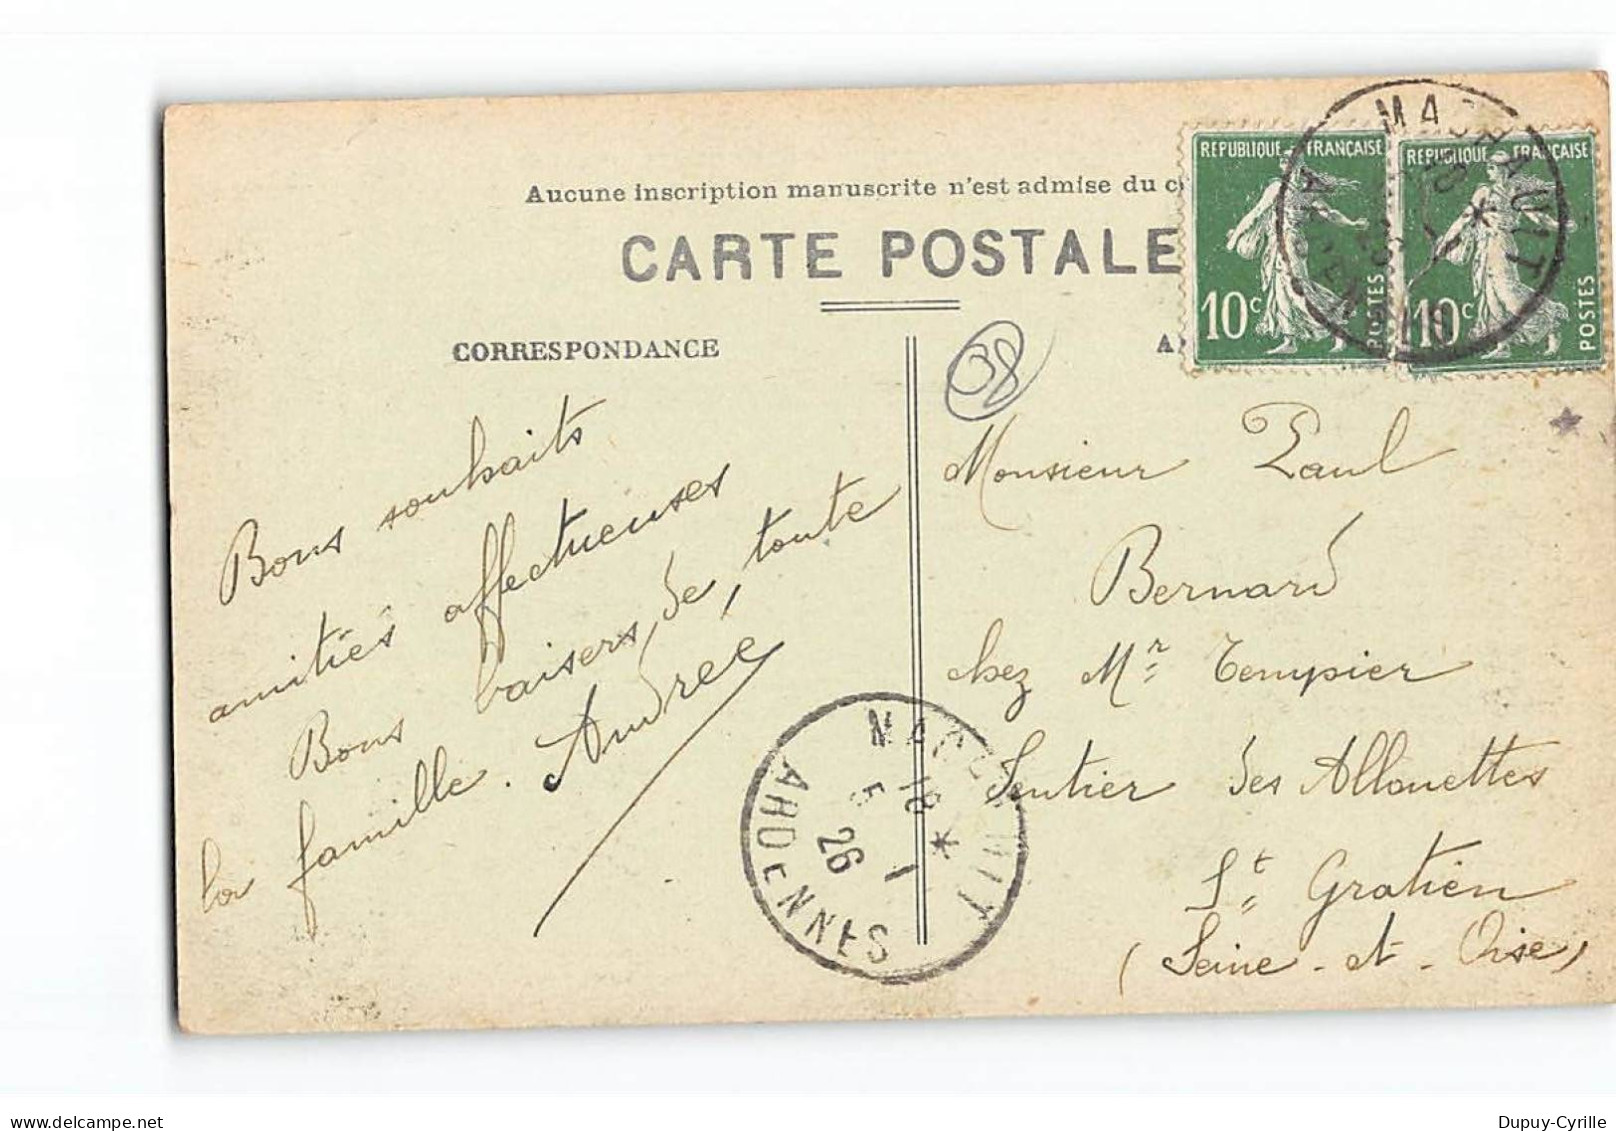 Aucune inscription manuscrite n'est admise du c
CARTE POSTALE
CORRESPONDANCE
REPUBLIQUE FRANÇAISE
10c
POSTES
REPUBLIQUE FRANÇAISE
10c
POSTES
08
Bons souhaits
amitiés affectueuses
Bons baisers de toute
la famille. Andrée
Monsieur Paul
Bernard
chez Mr Tempier
Sentier des Allouettes
St Gratien
(Seine-et-Oise)
18
5 1
26
ARDENNES
delcampe.net
Dupuy-Cyrille